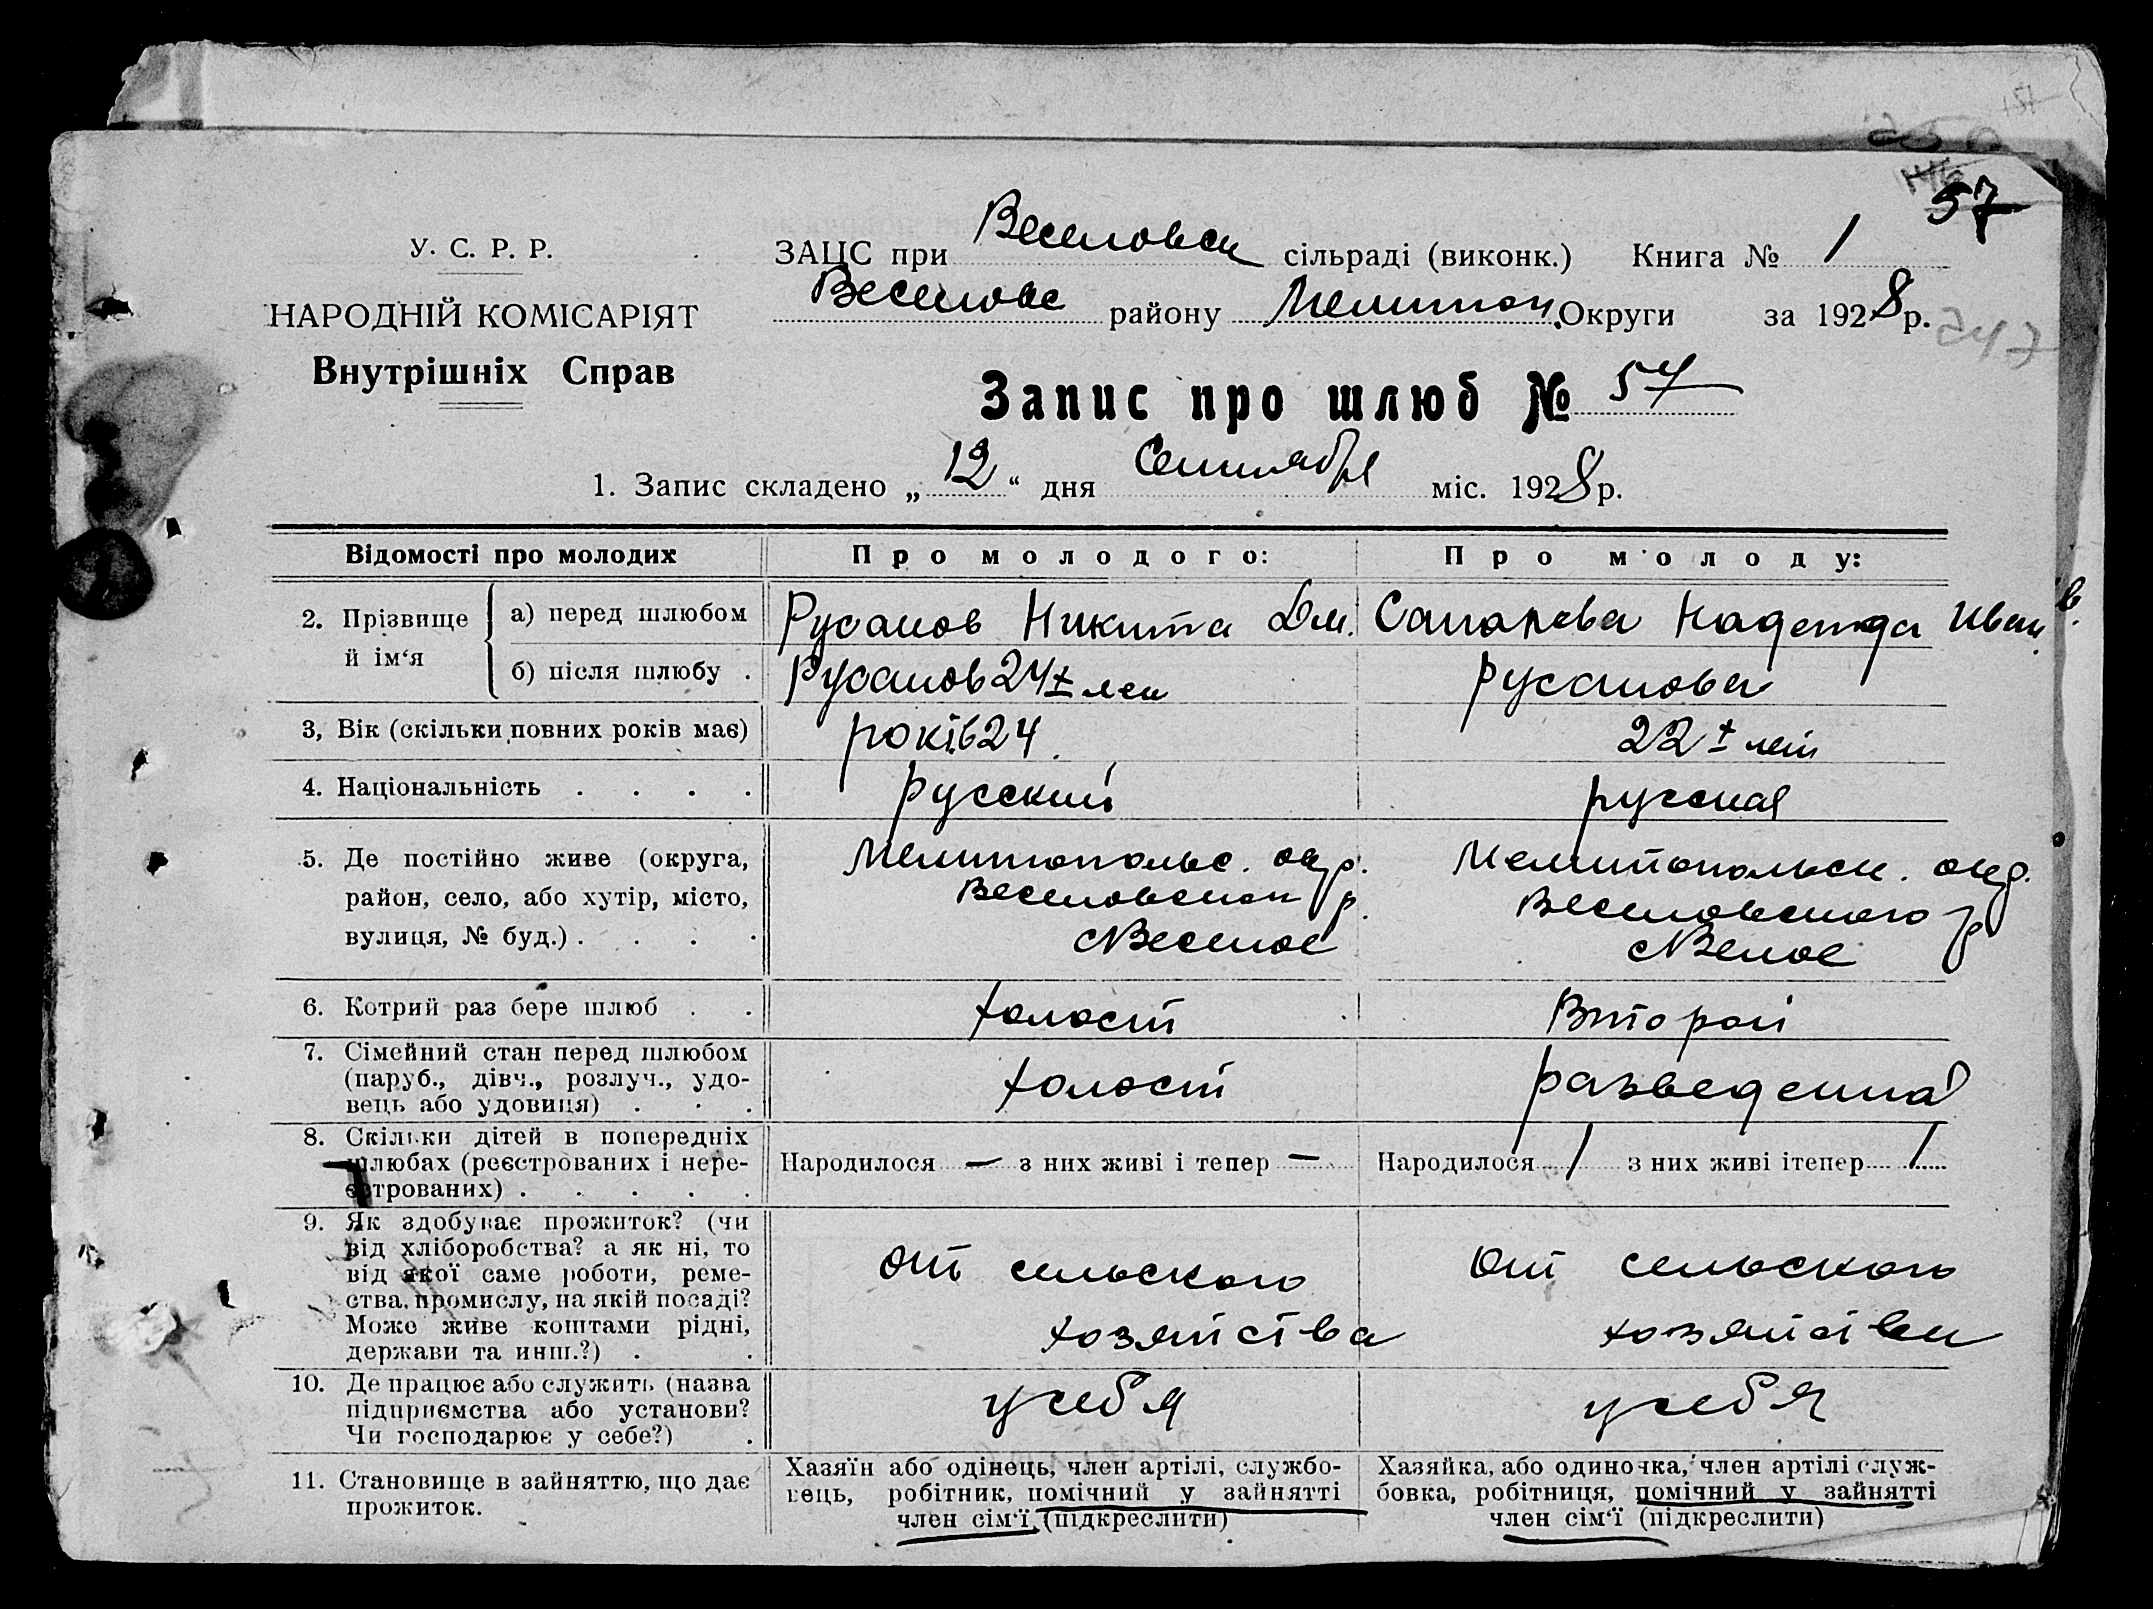 57
У. С. Р. Р.
НАРОДНІЙ КОМІСАРІЯТ
Внутрішніх Справ
ЗАЦС при Веселовск сільраді (виконк.) Книга № 1
Веселовс району Мелитоп. Округи за 1928 р.
247
Запис про шлюб № 57
1. Запис складено „ 12 “ дня Сентября міс. 1928 р.
Відомості про молодих Про молодого: Про молоду:
2. Прізвище й ім‘я
а) перед шлюбом Русанов Никита Дм. Надежда Иван
б) після шлюбу . Русанов 24 ± лет Русанова
3, Вік (скільки повних років має) років 24 22 ± лет
4. Національність . . . . русский русская
5. Де постійно живе (округа, Мелитопольс. окр. Мелитопольск. окр.
район, село, або хутір, місто, Веселовскаго р. Веселовского р
вулиця, № буд.) . . . . с Веселое с
6. Котрий раз бере шлюб . . холост Второй
7. Сімейний стан перед шлюбом
(паруб., дівч., розлуч., удо-
вець або удовиця) . . . холост разведенная
8. Скільки дітей в попередніх
шлюбах (реєстрованих і нере-
єстрованих) . . . . .
Народилося — з них живі і тепер — Народилося 1 з них живі ітепер 1
9. Як здобуває прожиток? (чи
від хліборобства? а як ні, то
від якої саме роботи, реме-
ства, промислу, на якій посаді?
Може живе коштами рідні,
держави та инш.?) . .
от сельского от сельского
хозяйства хозяйства
10. Де працює або служить (назва
підприємства або установи?
Чи господарює у себе?) .
у себя у себя
11. Становище в зайняттю, що дає
прожиток.
Хазяїн або одінець, член артілі, службо-
вець, робітник, помічний у зайнятті
член сім‘ї (підкреслити)
Хазяйка, або одиночка, член артілі служ-
бовка, робітниця, помічний у зайнятті
член сім‘ї (підкреслити)